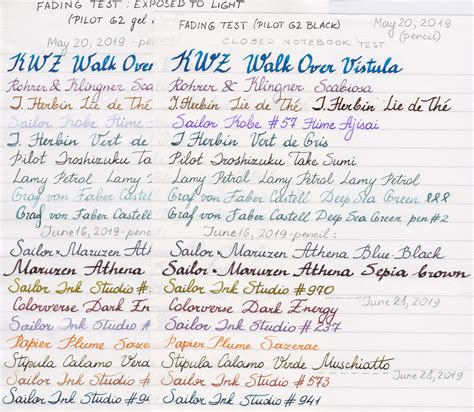 FADING TEST : EXPOSED TO LIGHT
(PILOT G2 gel
May 20, 2019 - pencil
KWZ Walk Over
Rohrer & Klingner Scabi
J. Herbin Lie de Thé
Sailor Kobe #57 Hime
J. Herbin Vert de
Pilot Iroshizuku Take
Lamy Petrol Lamy
Graf von Faber Castell
Graf von Faber Castell
June 16, 2019 - pencil
Sailor x Maruzen Athena
Maruzen Athena
Sailor Ink Studio #9
Colorverse Dark En
Sailor Ink Studio #
Papier Plume Sazerac
Stipula Calamo Verd
Sailor Ink Studio #
Sailor Ink Studio #
May 20, 2019
(pencil)
FADING TEST (PILOT G2 BLACK)
CLOSED NOTEBOOK TEST
KWZ Walk Over Vistula
Rohrer & Klingner Scabiosa
J. Herbin Lie de Thé J. Herbin Lie de Thé
Sailor Kobe #57 Hime Ajisai
J. Herbin Vert de Gris
Pilot Iroshizuku Take Sumi
Lamy Petrol Lamy Petrol
Graf von Faber Castell Deep Sea Green
Graf von Faber Castell Deep Sea Green pen #2
June 16, 2019 - pencil :
Sailor x Maruzen Athena Blue-Black
Sailor x Maruzen Athena Sepia Brown
Sailor Ink Studio #970
June 21, 2019
Colorverse Dark Energy
Sailor Ink Studio #237
Papier Plume Sazerac
Stipula Calamo Verde Muschiatto
Sailor Ink Studio #573
June 28, 2019
Sailor Ink Studio #941